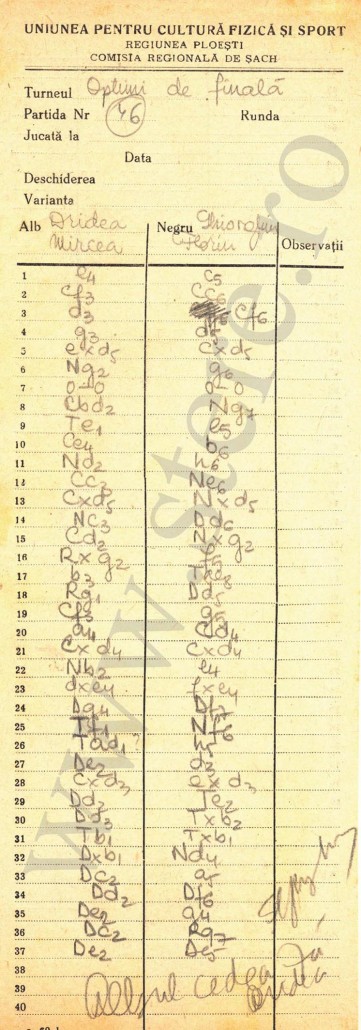 UNIUNEA PENTRU CULTURĂ FIZICĂ ȘI SPORT
REGIUNEA PLOEȘTI
COMISIA REGIONALĂ DE ȘACH
Turneul Optimi de finală
Partida Nr 46 Runda
Jucată la
Data
Deschiderea
Varianta
Alb Dridea Mircea Negru Florin Observații
1 e4 c5
2 Cf3 Cc6
3 d3 Cf6
4 g3 d5
5 exd5 Cxd5
6 Ng2 g6
7 0-0 0-0
8 Cbd2 Ng7
9 Te1 e5
10 Ce4 b6
11 Nd2 h6
12 Cc3 Ne6
13 Cxd5 Nxd5
14 Nc3 Dd6
15 Cd2 Nxg2
16 Rxg2 f5
17 b3 Tae8
18 Rg1 Dd5
19 Cf3 g5
20 a4 Cd4
21 Cxd4 cxd4
22 Nb2 e4
23 dxe4 fxe4
24 Dg4 Df7
25 Tf1 Nf6
26 Tad1? h5
27 De2 d3
28 cxd3 exd3
29 Dd2 Te2
30 Dd3 Txb2
31 Tb1 Txb1
32 Dxb1 Nd4
33 Dc2 a5
34 Dd2 Df6
35 De2 a4
36 Dc2 Rg7
37 De2 De5
38
39 Albul cedează
40 Dridea
www.stere.ro